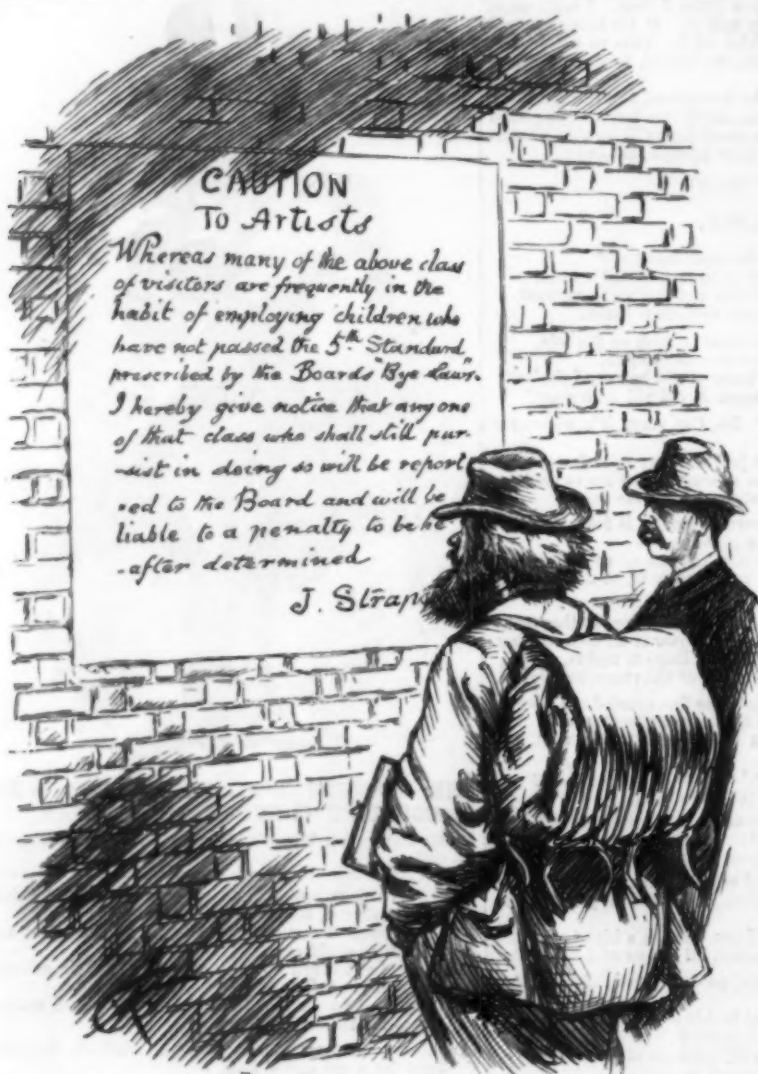 CAUTION
To Artists
Whereas many of the above class
of visitors are frequently in the
habit of employing children who
have not passed the 5th Standard
prescribed by the Boards "Bye Laws".
I hereby give notice that any one
of that class who shall still pur-
-sist in doing so will be report
-ed to the Board and will be
liable to a penalty to be he
-after determined
J. Strap